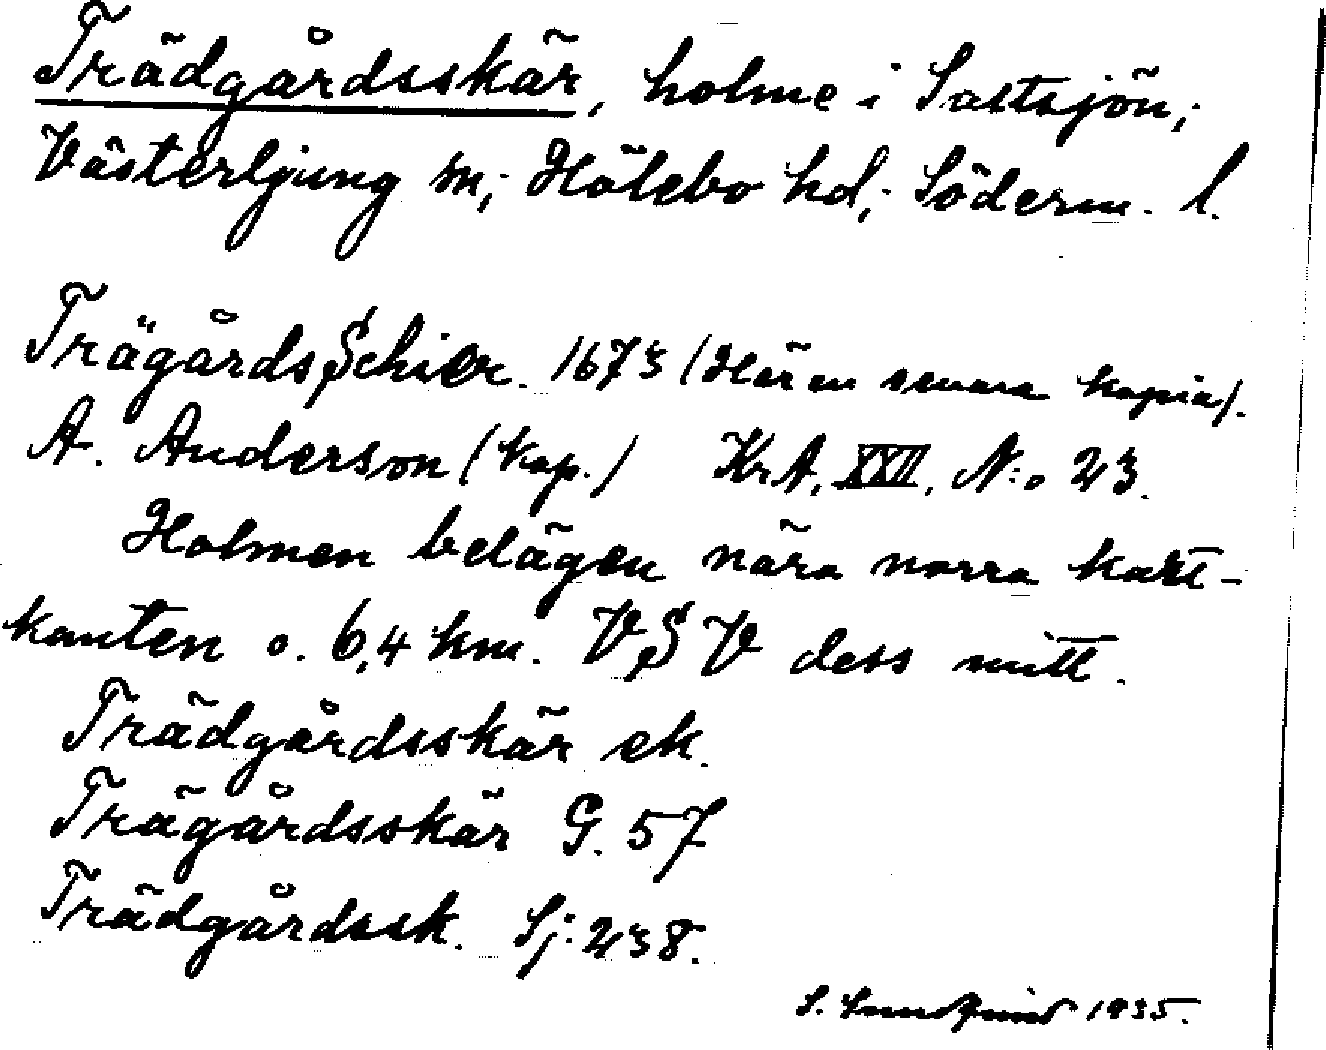 Trädgårdsskär, holme i Saltsjön,
Västerljung sn; Hölebo hd; Söderm. l.
TrägårdsSchier. 1673 (Här en senare kopia).
A. Anderson (kop.) KrA, XXII, N:o 23.
Holmen belägen nära norra kart-
kanten o. 6,4 km. VSV dess mitt.
Trädgårdsskär ek.
Trägårdsskär G. 57
Trädgårdssk. Sj: 238.
S. 1935.